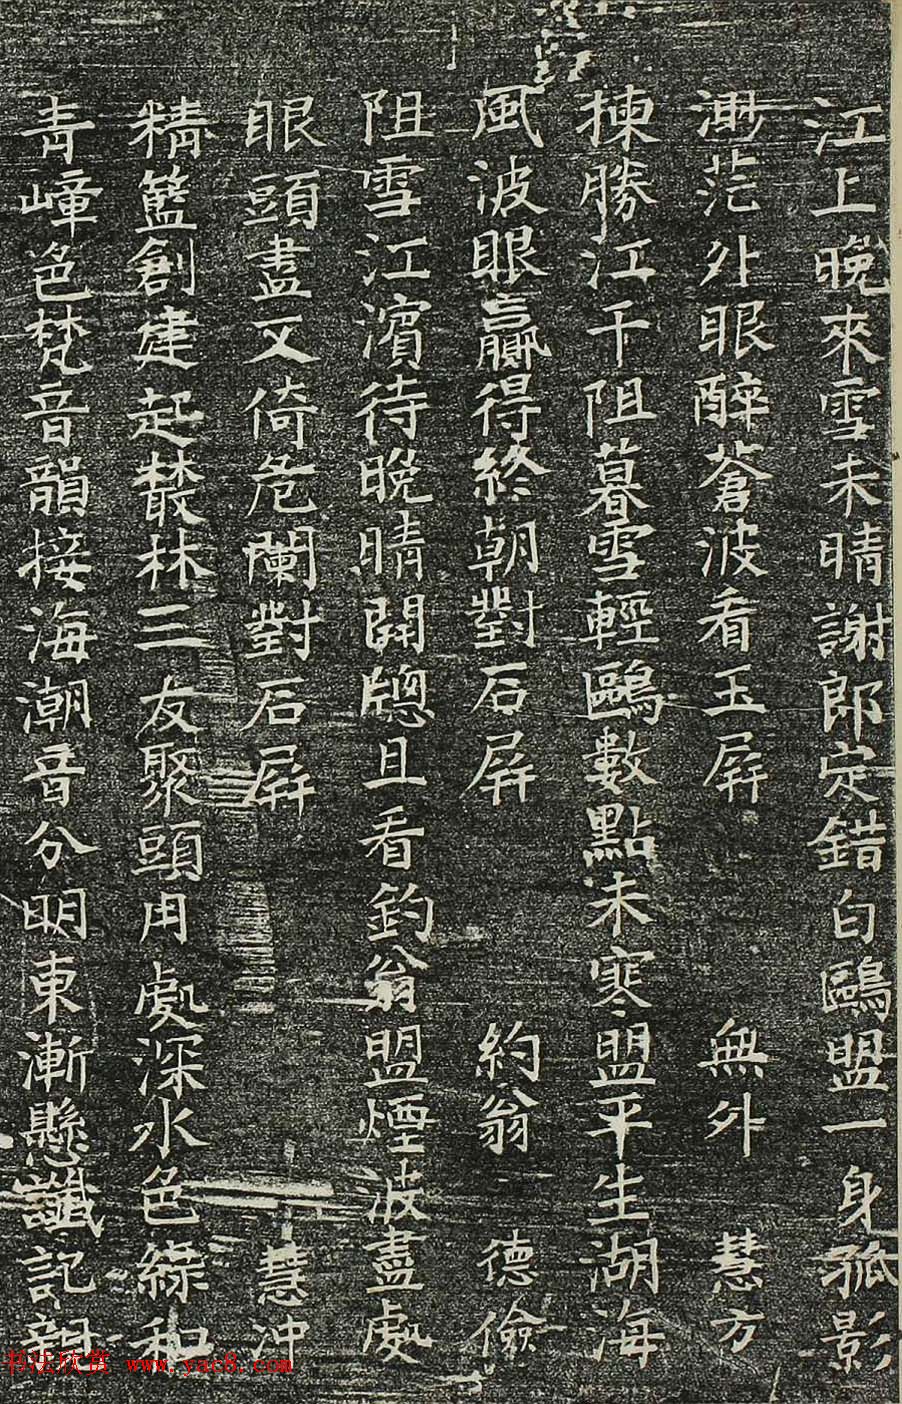 江上晚來雪未晴謝郎定錯白鷗盟一身孤影
渺茫外眼醉蒼波看玉屏 無外 慧方
揀勝江干阻暮雪輕鷗數點未寒盟平生湖海
風波眼贏得終朝對石屏 約翁 德儉
阻雪江濱待晚晴開牕且看釣翁盟煙波盡處
眼頭盡又倚危闌對石屏 慧冲
精籃創建起叢林三友聚頭用處深水色綠和
青嶂色梵音韻接海潮音分明東漸懸讖記親
书法欣赏 www.yac8.com